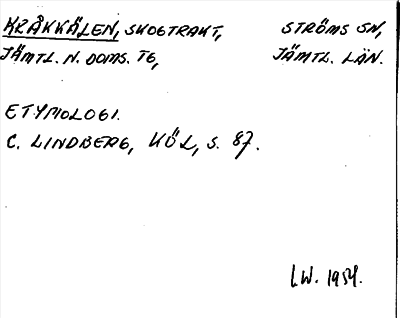 KRÅKKÄLEN, SKOGTRAKT, STRÖMS SN,
JÄMTL. N. DOMS. TG, JÄMTL. LÄN.
ETYMOLOGI.
C. LINDBERG, KÖL, S. 87.
L.W. 1954.